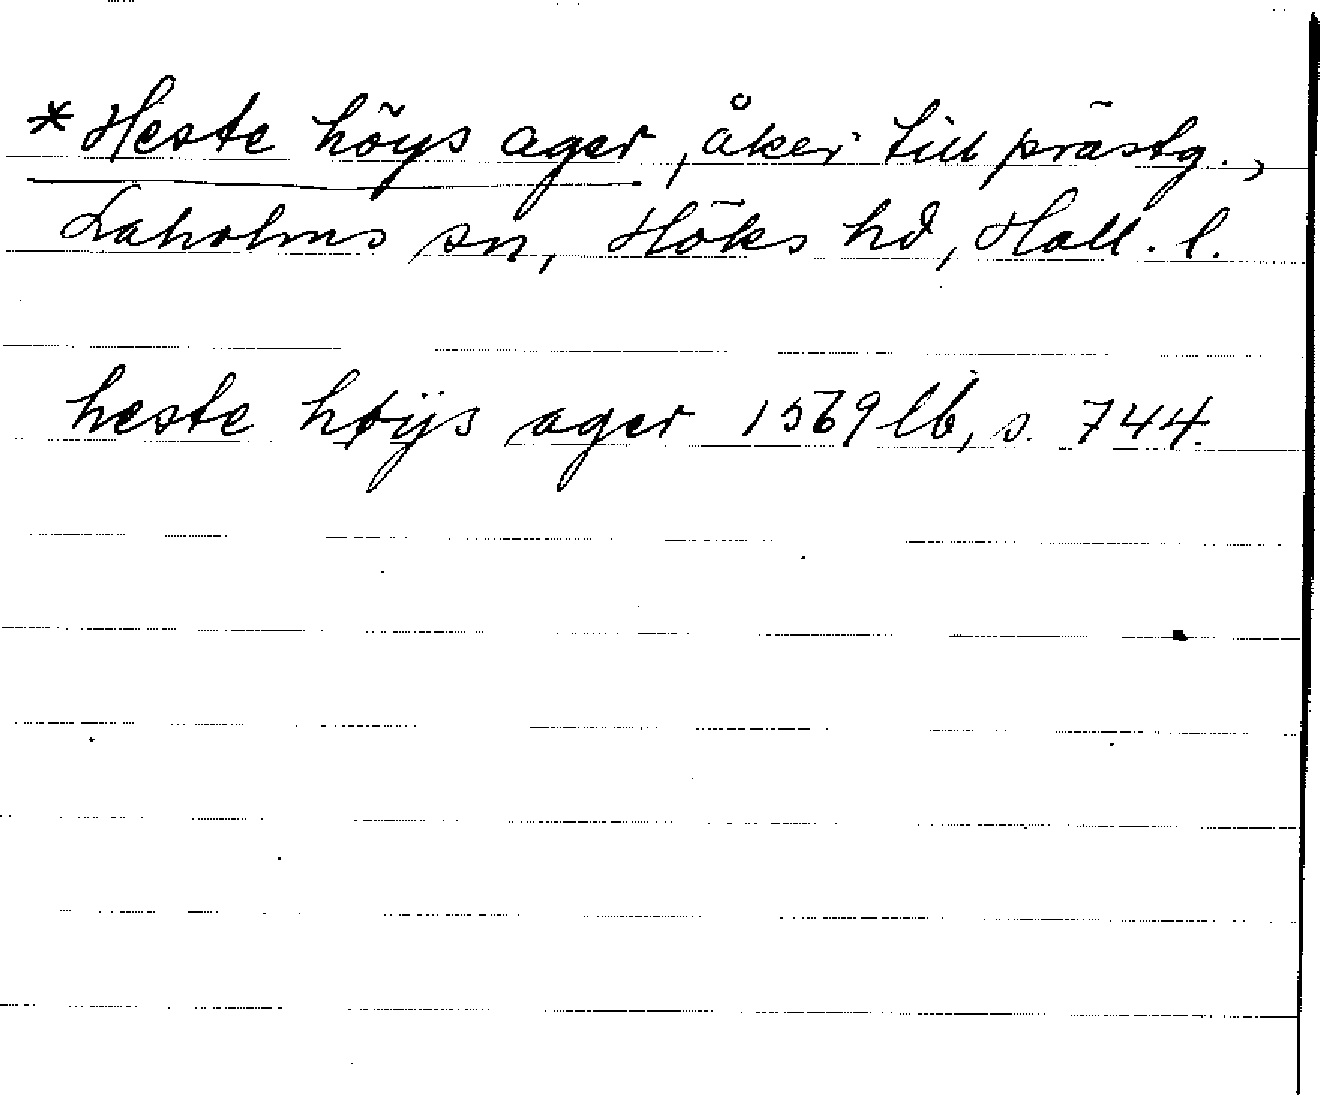 *Heste höys ager, åker till prästg.,
Laholms sn, Höks hd, Hall. l.
heste høÿs ager 1569 lb, s. 744.